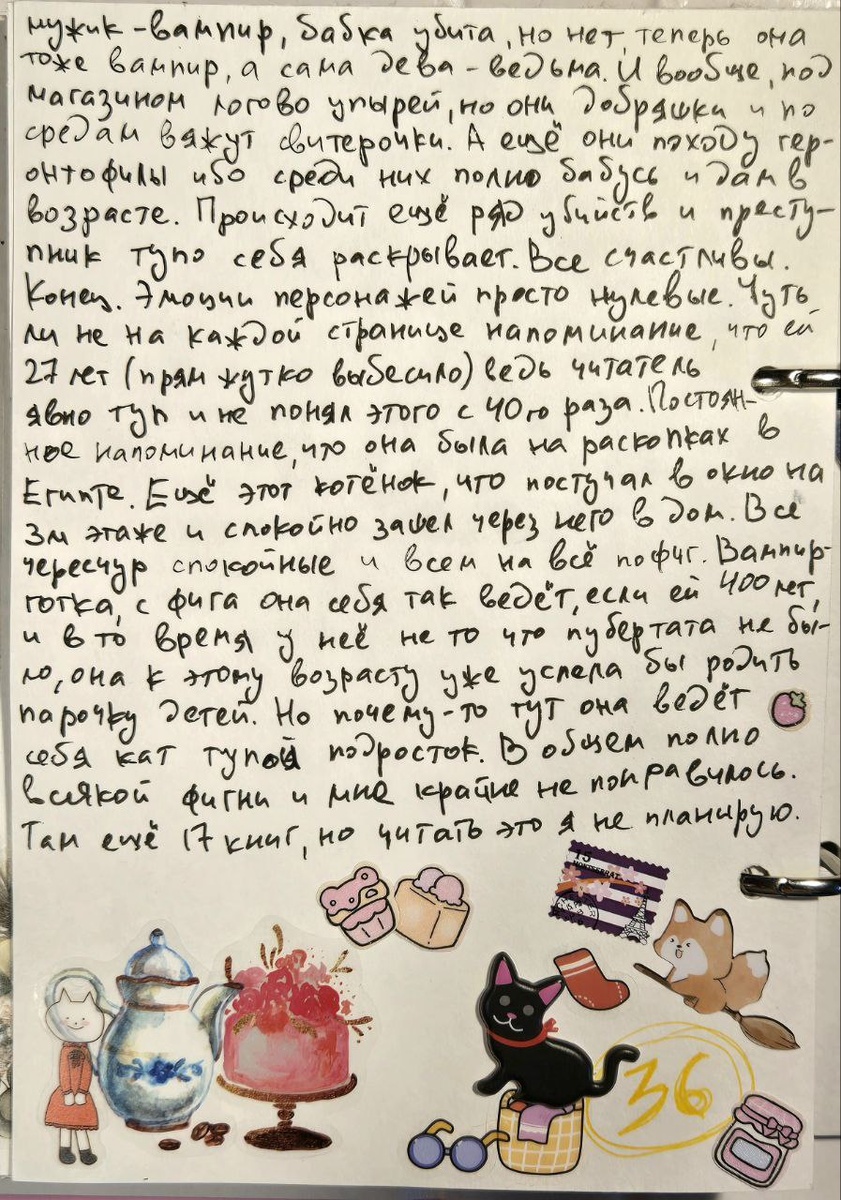 мужик-вампир, бабка убита, но нет, теперь она
тоже вампир, а сама дева-ведьма. И вообще, под
магазином логово упырей, но они добряшки и по
средам вяжут свитерочки. А ещё они походу гер-
онтофилы ибо среди них полно бабусь и дам в
возрасте. Происходит ещё ряд убийств и престу-
пник тупо себя раскрывает. Все счастливы.
Конец. Эмоции персонажей просто нулевые. Чуть
ли не на каждой странице напоминание, что ей
27 лет (прям жутко выбесило) ведь читатель
явно туп и не понял этого с 40го раза. Постоян-
ное напоминание, что она была на раскопках в
Египте. Ещё этот котёнок, что постучал в окно на
3м этаже и спокойно зашел через него в дом. Все
чересчур спокойные и всем на всё пофиг. Вампир-
готка, с фига она себя так ведёт, если ей 400 лет,
и в то время у неё не то что пубертата не бы-
ло, она к этому возрасту уже успела бы родить
парочку детей. Но почему-то тут она ведёт
себя кат тупой подросток. В общем полно
всякой фигни и мне крайне не понравилось.
Там ещё 17 книг, но читать это я не планирую.
15
MONTSERRAT
36